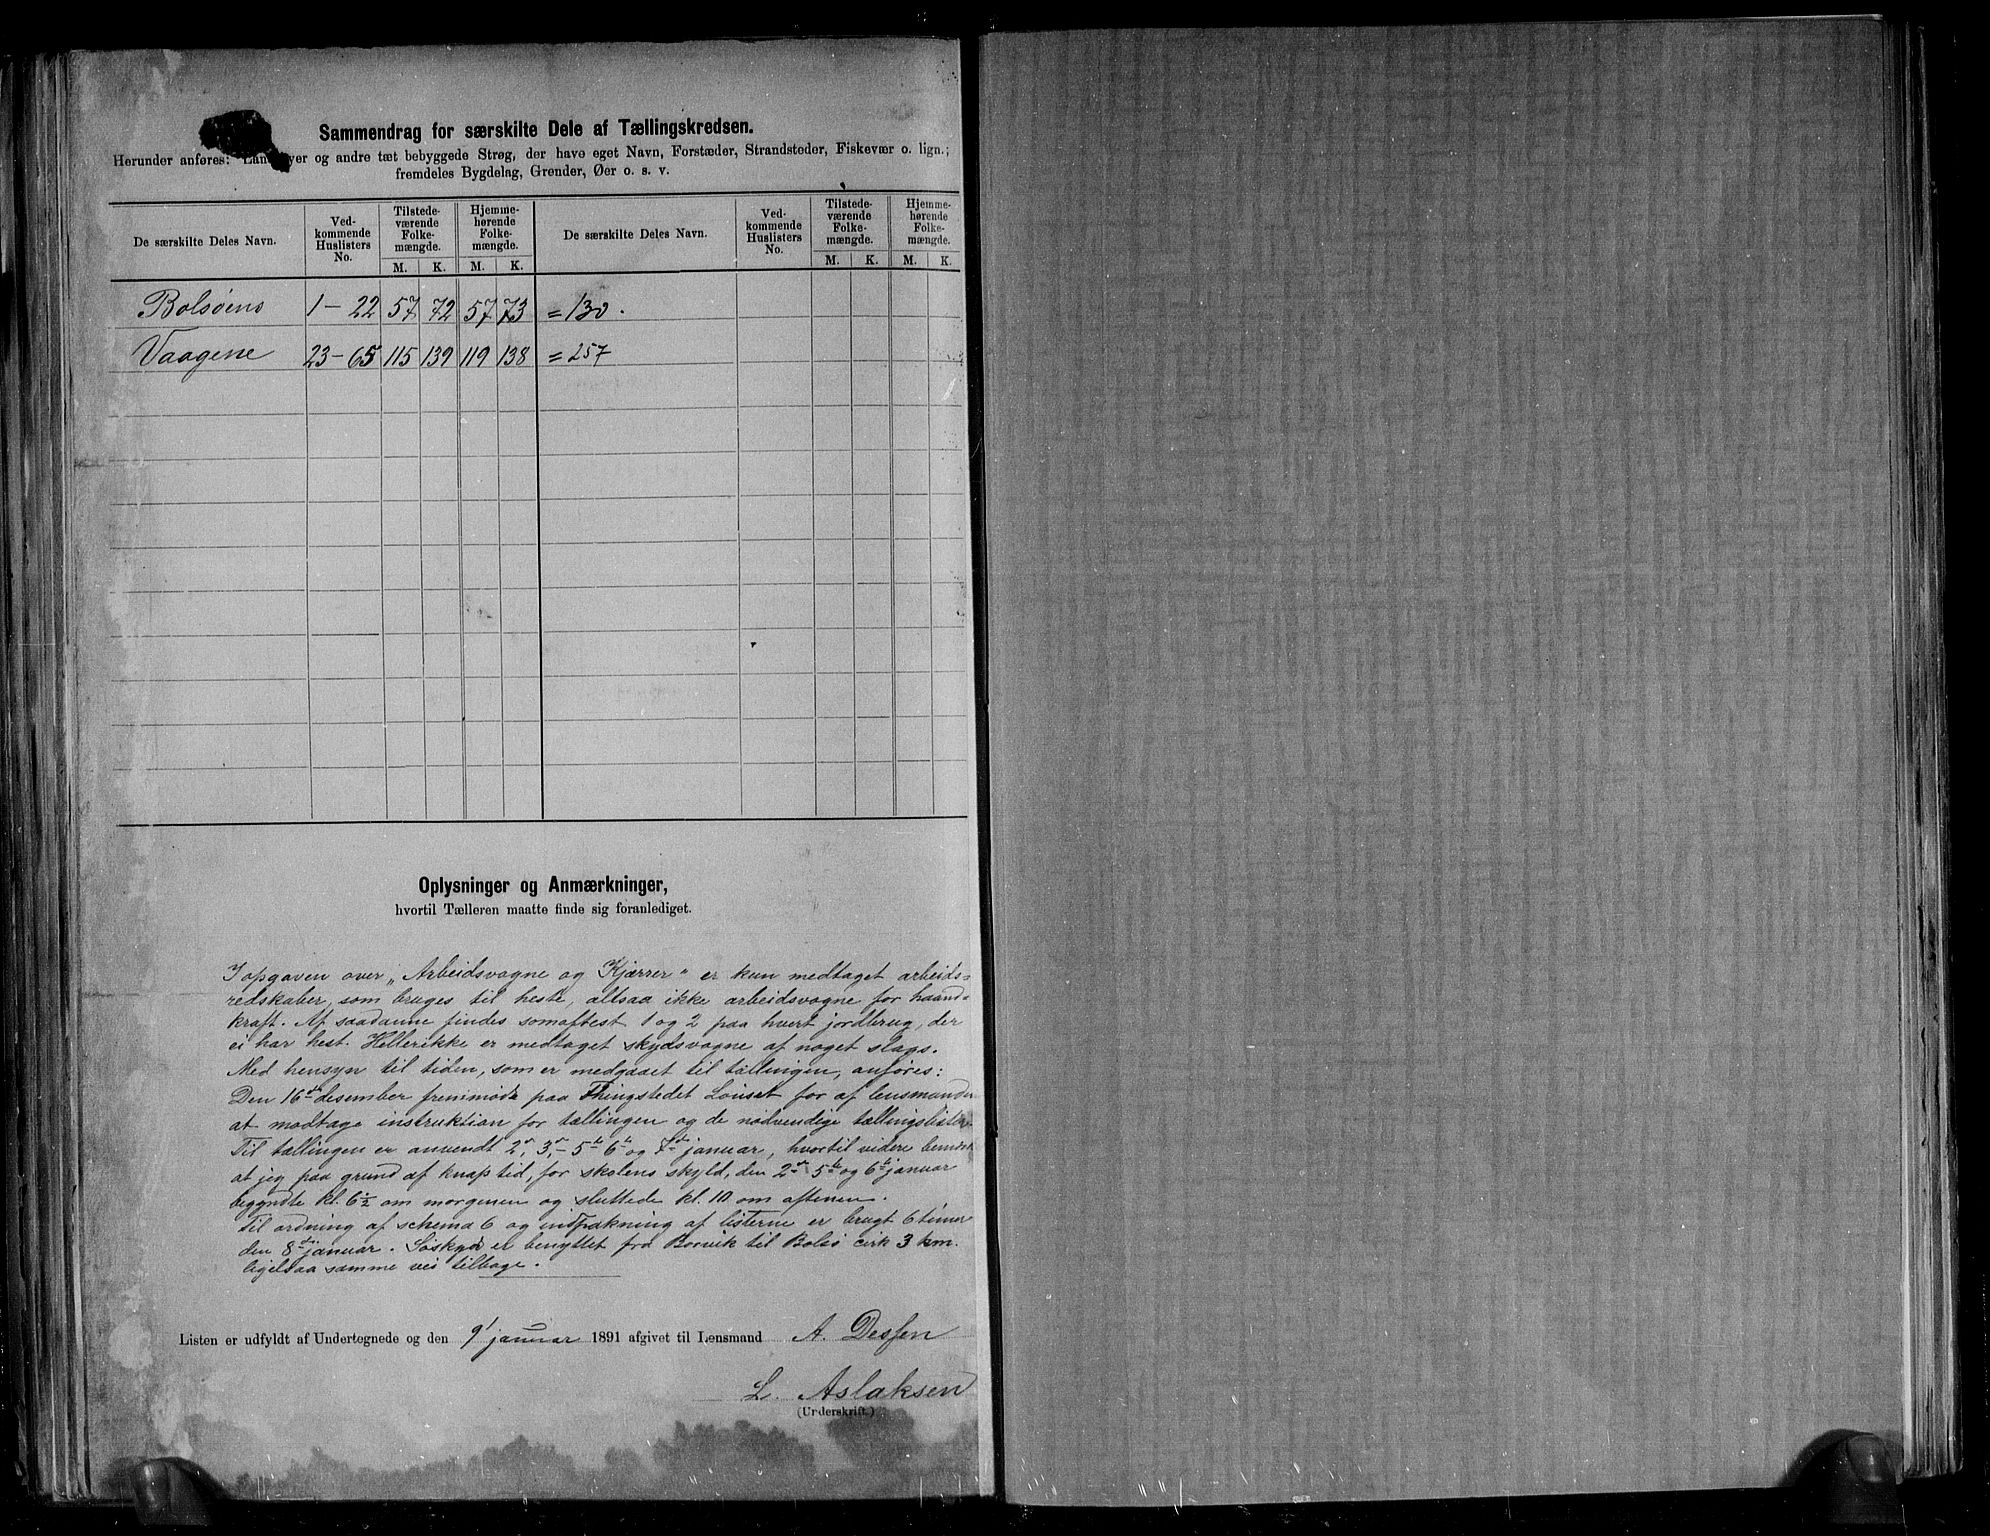 Sammendrag for særskilte Dele af Tællingskredsen.
Herunder anføres: og andre tæt bebyggede Strøg, der have eget Navn, Forstæder, Strandsteder, Fiskevær o. lign.;
fremdeles Bygdelag, Grender, Øer o. s. v.
De særskilte Deles Navn. Ved-kommende Huslisters No. Tilstede-værende Folke-mængde. Hjemme-hørende Folke-mængde. De særskilte Deles Navn. Ved-kommende Huslisters No. Tilstede-værende Folke-mængde. Hjemme-hørende Folke-mængde.
M. K. M. K. M. K. M. K.
Bolsøens 1 - 22 57 72 57 73 = 130.
Vaagene 23 - 65 115 139 119 138 = 257
Oplysninger og Anmærkninger,
hvortil Tælleren maatte finde sig foranlediget.
I opgaven over „Arbeidsvogne og Kjærrer" er kun medtaget arbeids-
redskaber, som bruges til heste, altsaa ikke arbeidsvogne for haand-
kraft. Af saadanne findes somoftest 1 og 2 paa hvert jordbrug, der
ei har hest. Hellerikke er medtaget skydsvogne af noget slags.
Med hensyn til tiden, som er medgaaet til tællingen, anføres:
Den 16de desember fremmødte paa Thingstedet Lønset for af lensmanden
at modtage instruktion for tællingen og de nødvendige tællingslister.
Til tællingen er anvendt 2den, 3de, 5te 6te og 7de januar, hvortil videre
at jeg paa grund af knap tid, for skolens skyld, den 2den 5te og 6te januar
begyndte kl. 6½ om morgenen og sluttede kl. 10 om aftenen.
Til ordning af schema 6 og indpakning af listerne er brugt 6 timer
den 8de januar. Søskyds er benyttet fra Borvik til Bolsø cirk 3 km.
ligesaa samme vei tilbage.
Listen er udfyldt af Undertegnede og den 9' januar 1891 afgivet til Lensmand A. Dessen
L. Aslaksen
(Underskrift.)